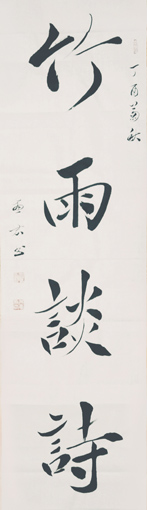 丁酉菊秋
竹雨談詩